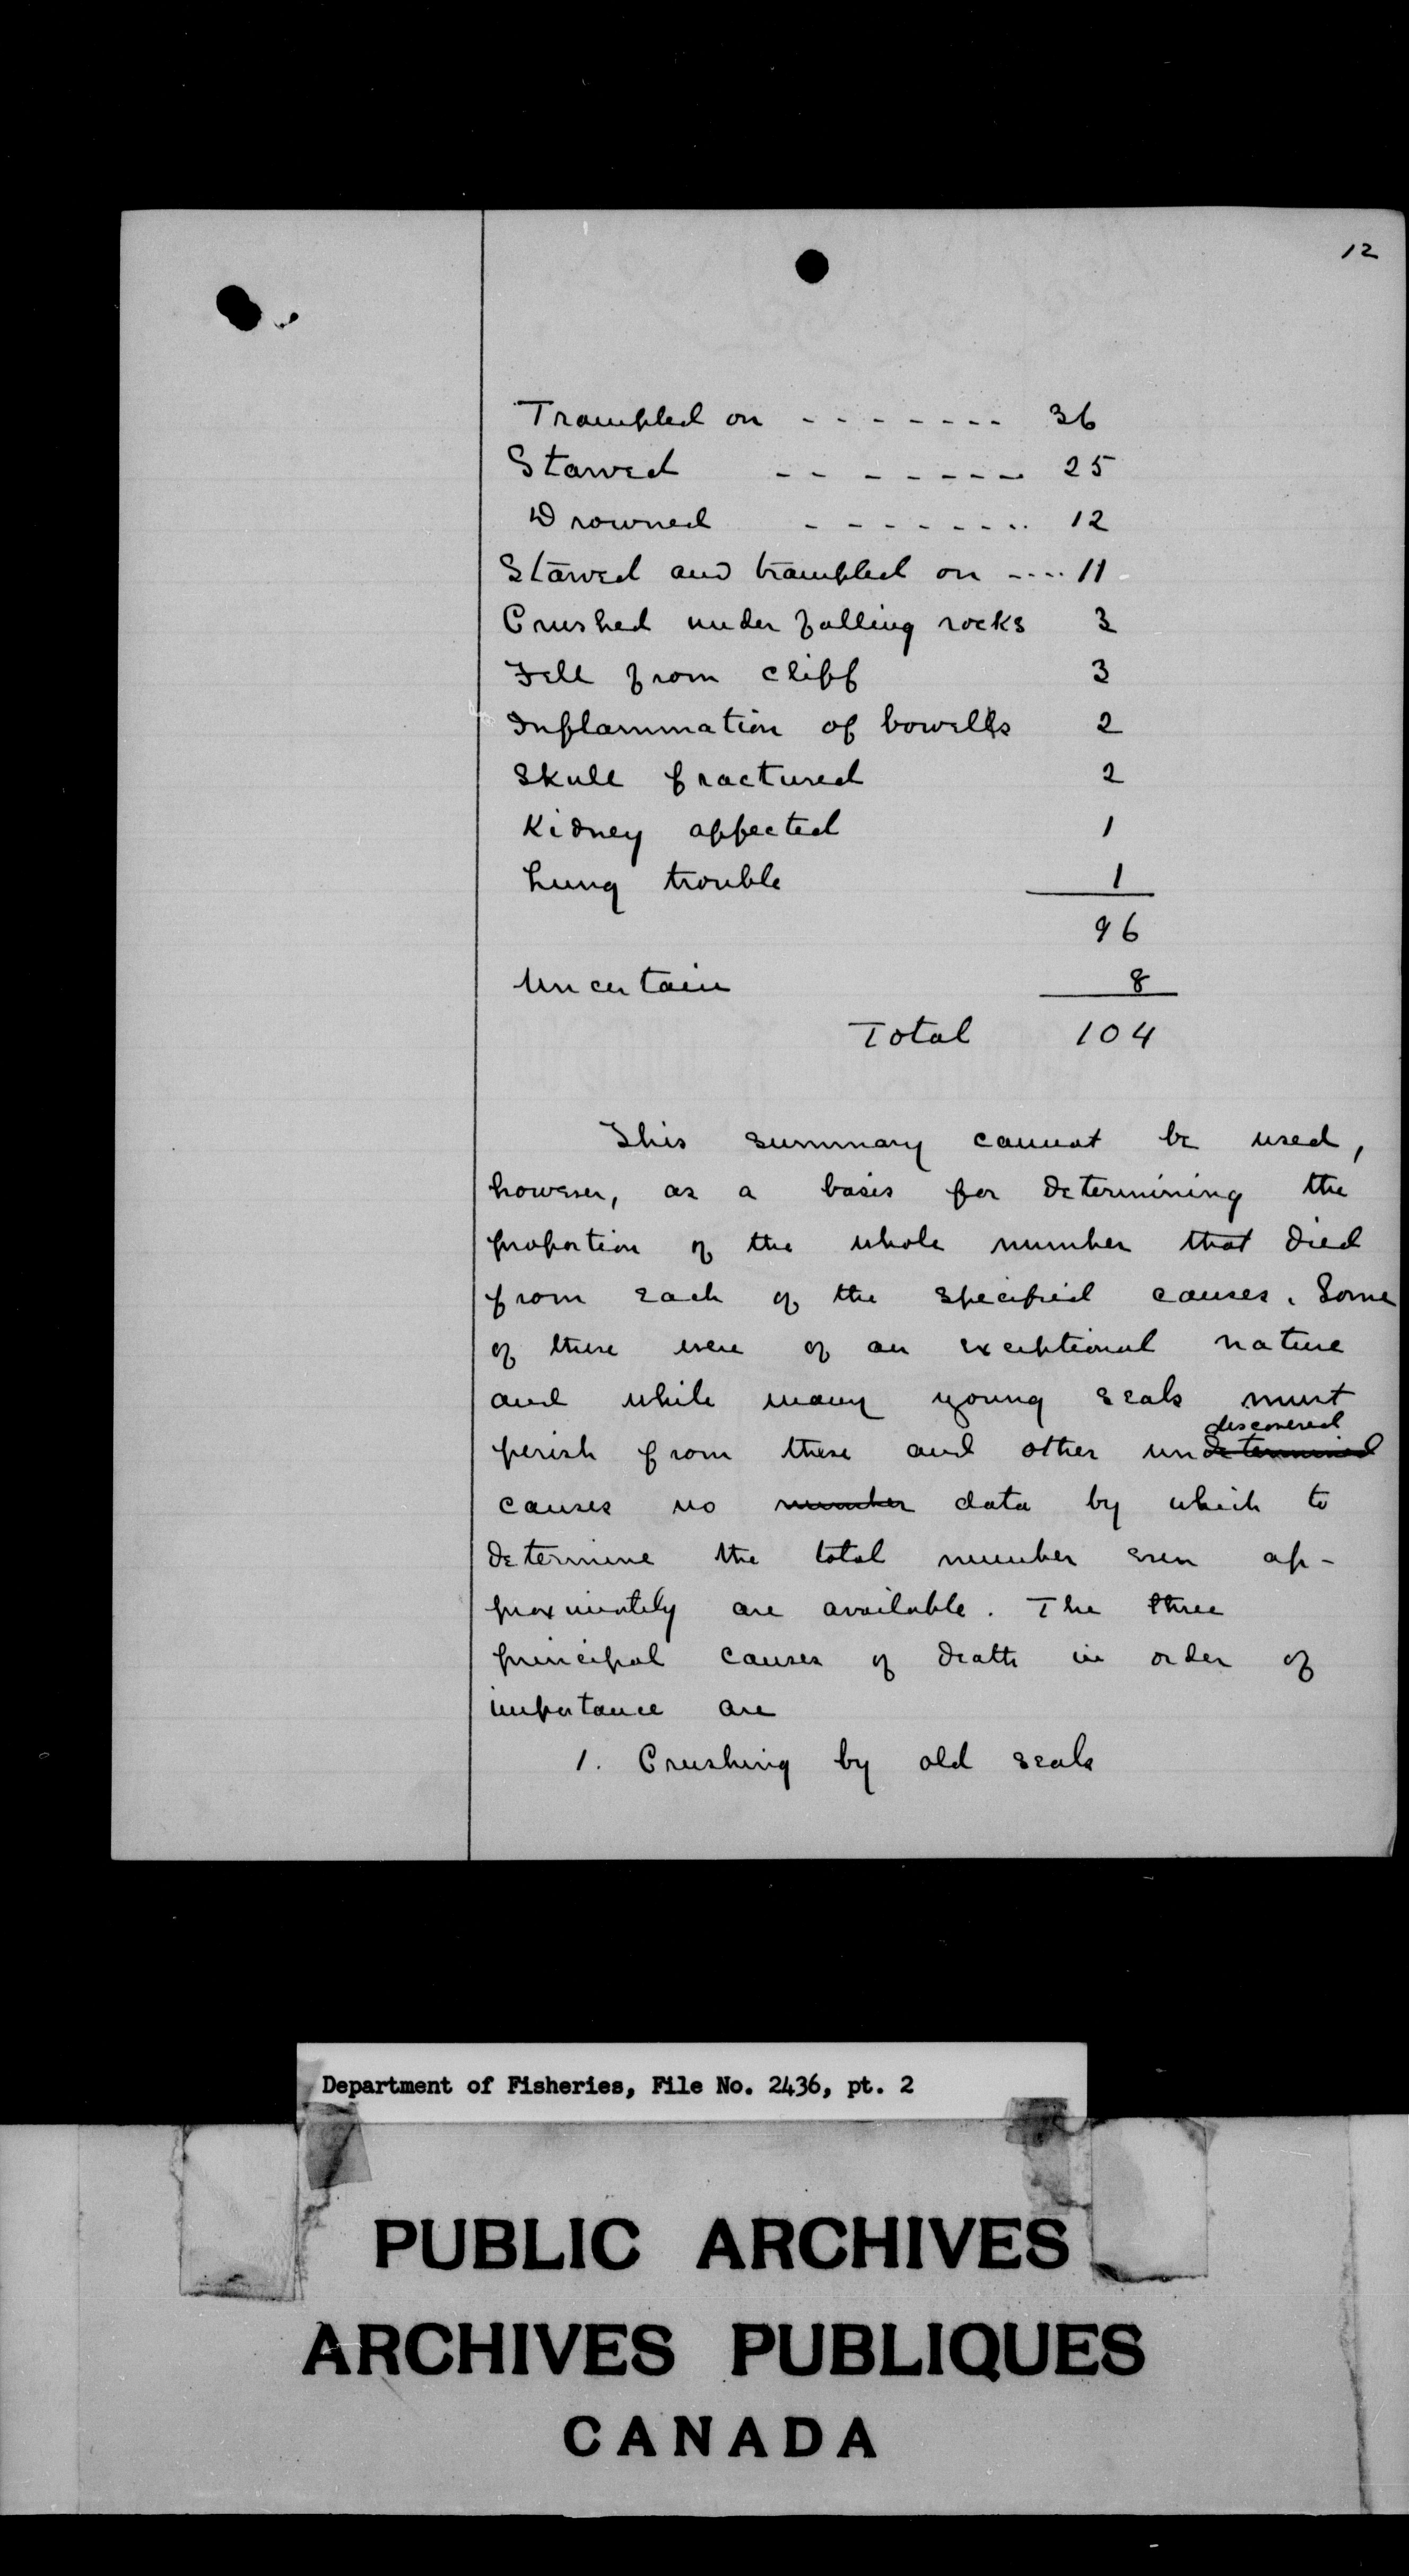 12
Trampled on - - - - - - - 36
Starved - - - - - - - 25
Drowned - - - - - - - - 12
Starved and trampled on ---- 11
Crushed under falling rocks 3
Fell from cliff 3
Inflammation of bowells 2
Skull fractured 2
Kidney affected 1
Lung trouble 1
96
Uncertain 8
Total 104
This summary cannot be used,
however, as a basis for determining the
proportion of the whole number that died
from each of the specified causes. Some
of these were of an exceptional nature
and while many young seals must
discovered
perish from these and other undetermined
causes no number data by which to
determine the total number even ap-
proximately are available. The three
principal causes of death in order of
importance are
1. Crushing by old seals
Department of Fisheries, File No. 2436, pt. 2
PUBLIC ARCHIVES
ARCHIVES PUBLIQUES
CANADA